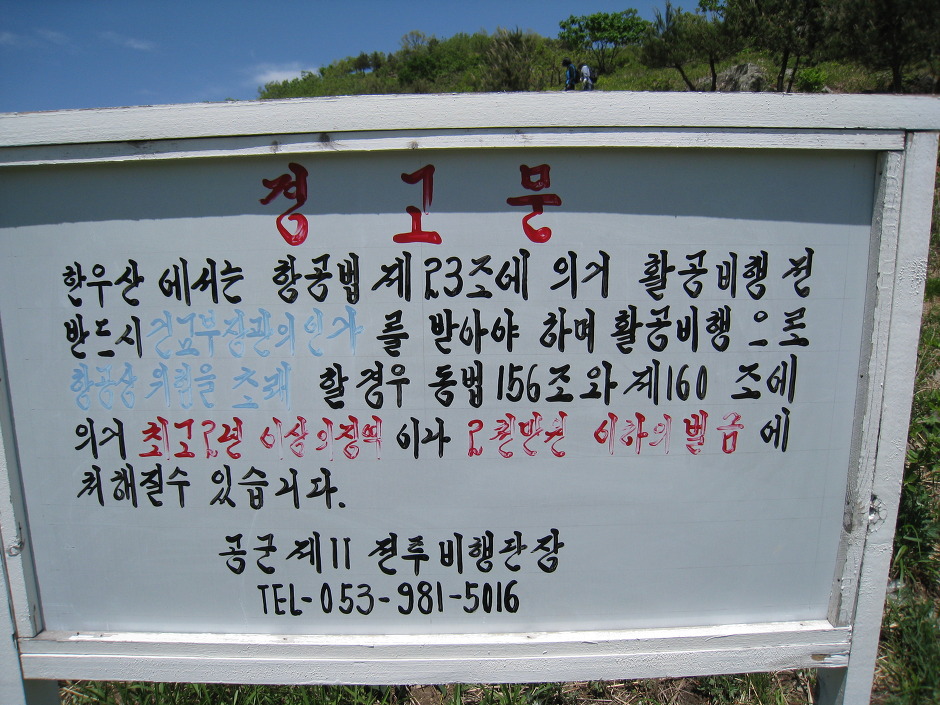 경고문
한우산 에서는 항공법 제23조에 의거 활공비행 전
반드시 건교부장관의 인가 를 받아야 하며 활공비행 으로
항공상 위험을 초래 할 경우 동법 156조와 제160 조에
의거 최고 2년 이상의 징역 이나 2천만원 이하의 벌금 에
처해질수 있습니다.
공군 제11 전투비행단장
TEL-053-981-5016